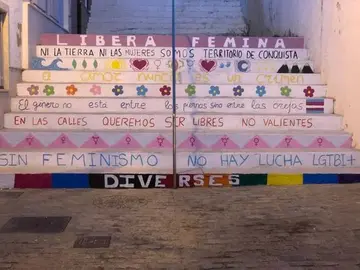 LIBERA FEMINA
NI LA TIERRA NI LAS MUJERES SOMOS TERRITORIO DE CONQUISTA
a amor nunca es un crimen
El género no esta entre las piernas sino entre las orejas
EN LAS CALLES QUEREMOS SIR LIBRES NO VALIENTES
SIN FEMINISMO NO HAY LUCHA LGTBI+
DIVERSES